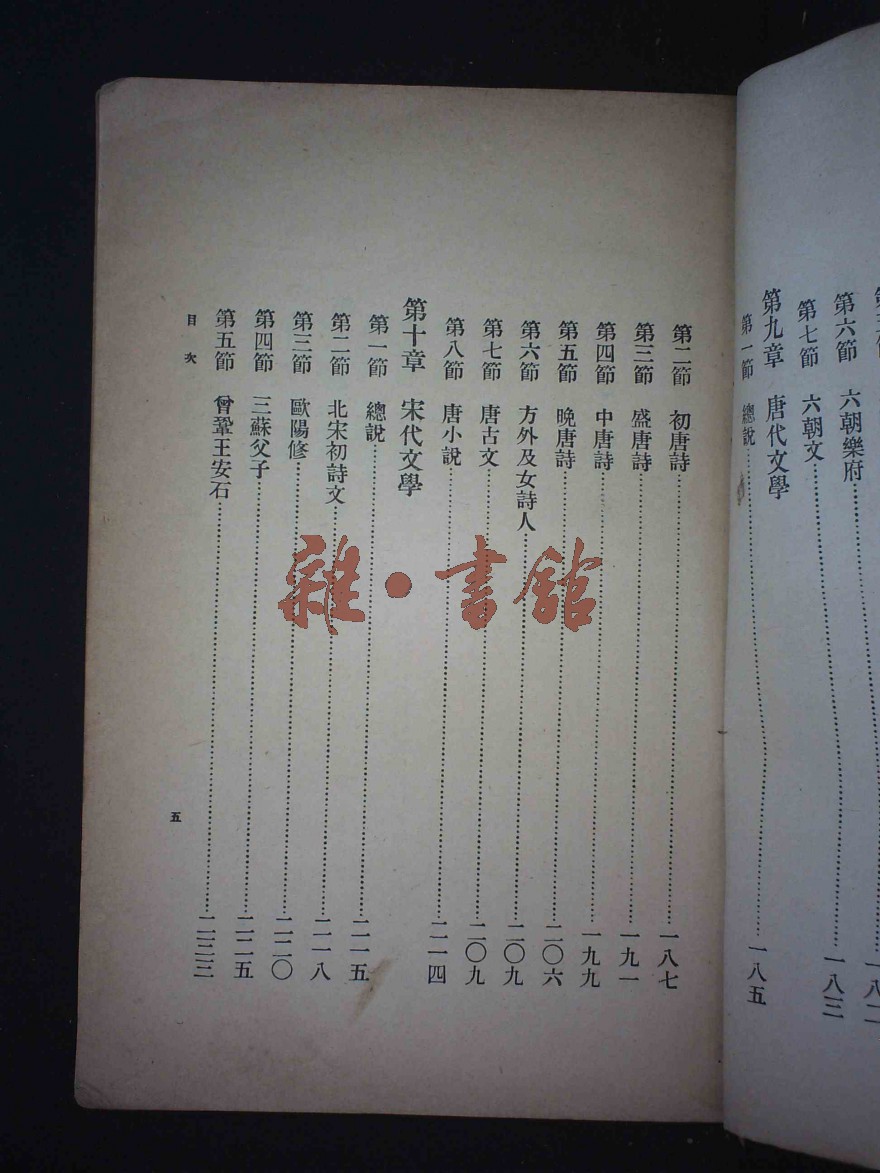 第六節 六朝樂府……
第七節 六朝文……一八三
第九章 唐代文學
第一節 總說……一八五
第二節 初唐詩……一八七
第三節 盛唐詩……一九一
第四節 中唐詩……一九九
第五節 晚唐詩……二〇六
第六節 方外及女詩人……二〇九
第七節 唐古文……二〇九
第八節 唐小說……二一四
第十章 宋代文學
第一節 總說……二一五
第二節 北宋初詩文……二一八
第三節 歐陽修……二二〇
第四節 三蘇父子……二二五
第五節 曾鞏王安石……二三三
目次
五
雜·書館